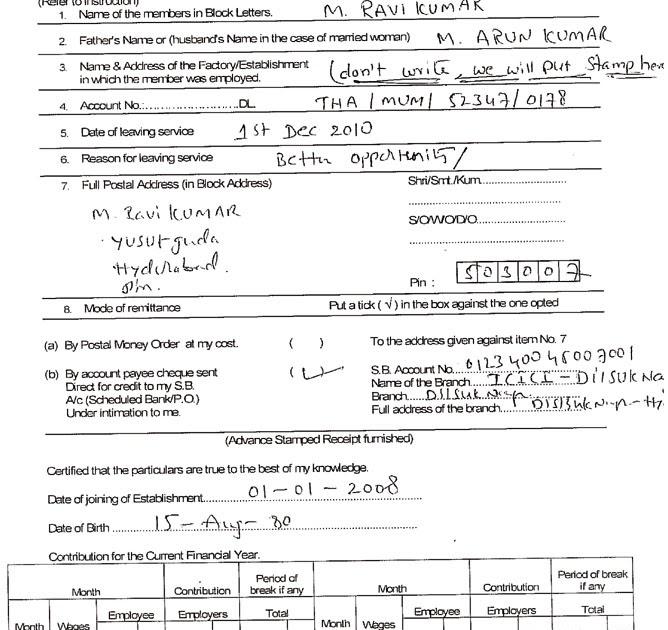 (Refer to Instruction)
1. Name of the members in Block Letters. M. RAVI KUMAR
2. Father's Name or (husband's Name in the case of married woman) M. ARUN KUMAR
3. Name & Address of the Factory/Establishment in which the member was employed. (don't write, we will put stamp here
4. Account No.:........................DL THA / MUM / 52347/0178
5. Date of leaving service 1st Dec 2010
6. Reason for leaving service Better opportunity
7. Full Postal Address (in Block Address) Shri/Smt./Kum.
M. Ravi KUMAR
Yusufguda S/O/W/O/D/O
Hyderabad.
Pin : 503007
8. Mode of remittance Put a tick ( √ ) in the box against the one opted
(a) By Postal Money Order at my cost. ( ) To the address given against item No. 7
(b) By account payee cheque sent (✓) S.B. Account No. 012340045007001
Direct for credit to my S.B. Name of the Branch ICICI - DilSUKNa
A/c (Scheduled Bank/P.O.) Branch
Under intimation to me. Full address of the branch
(Advance Stamped Receipt furnished)
Certified that the particulars are true to the best of my knowledge.
Date of joining of Establishment 01-01-2008
Date of Birth 15-Aug-80
Contribution for the Current Financial Year.
Month Contribution Period of break if any Month Contribution Period of break if any
Month Wages Employee Employers Total Month Wages Employee Employers Total